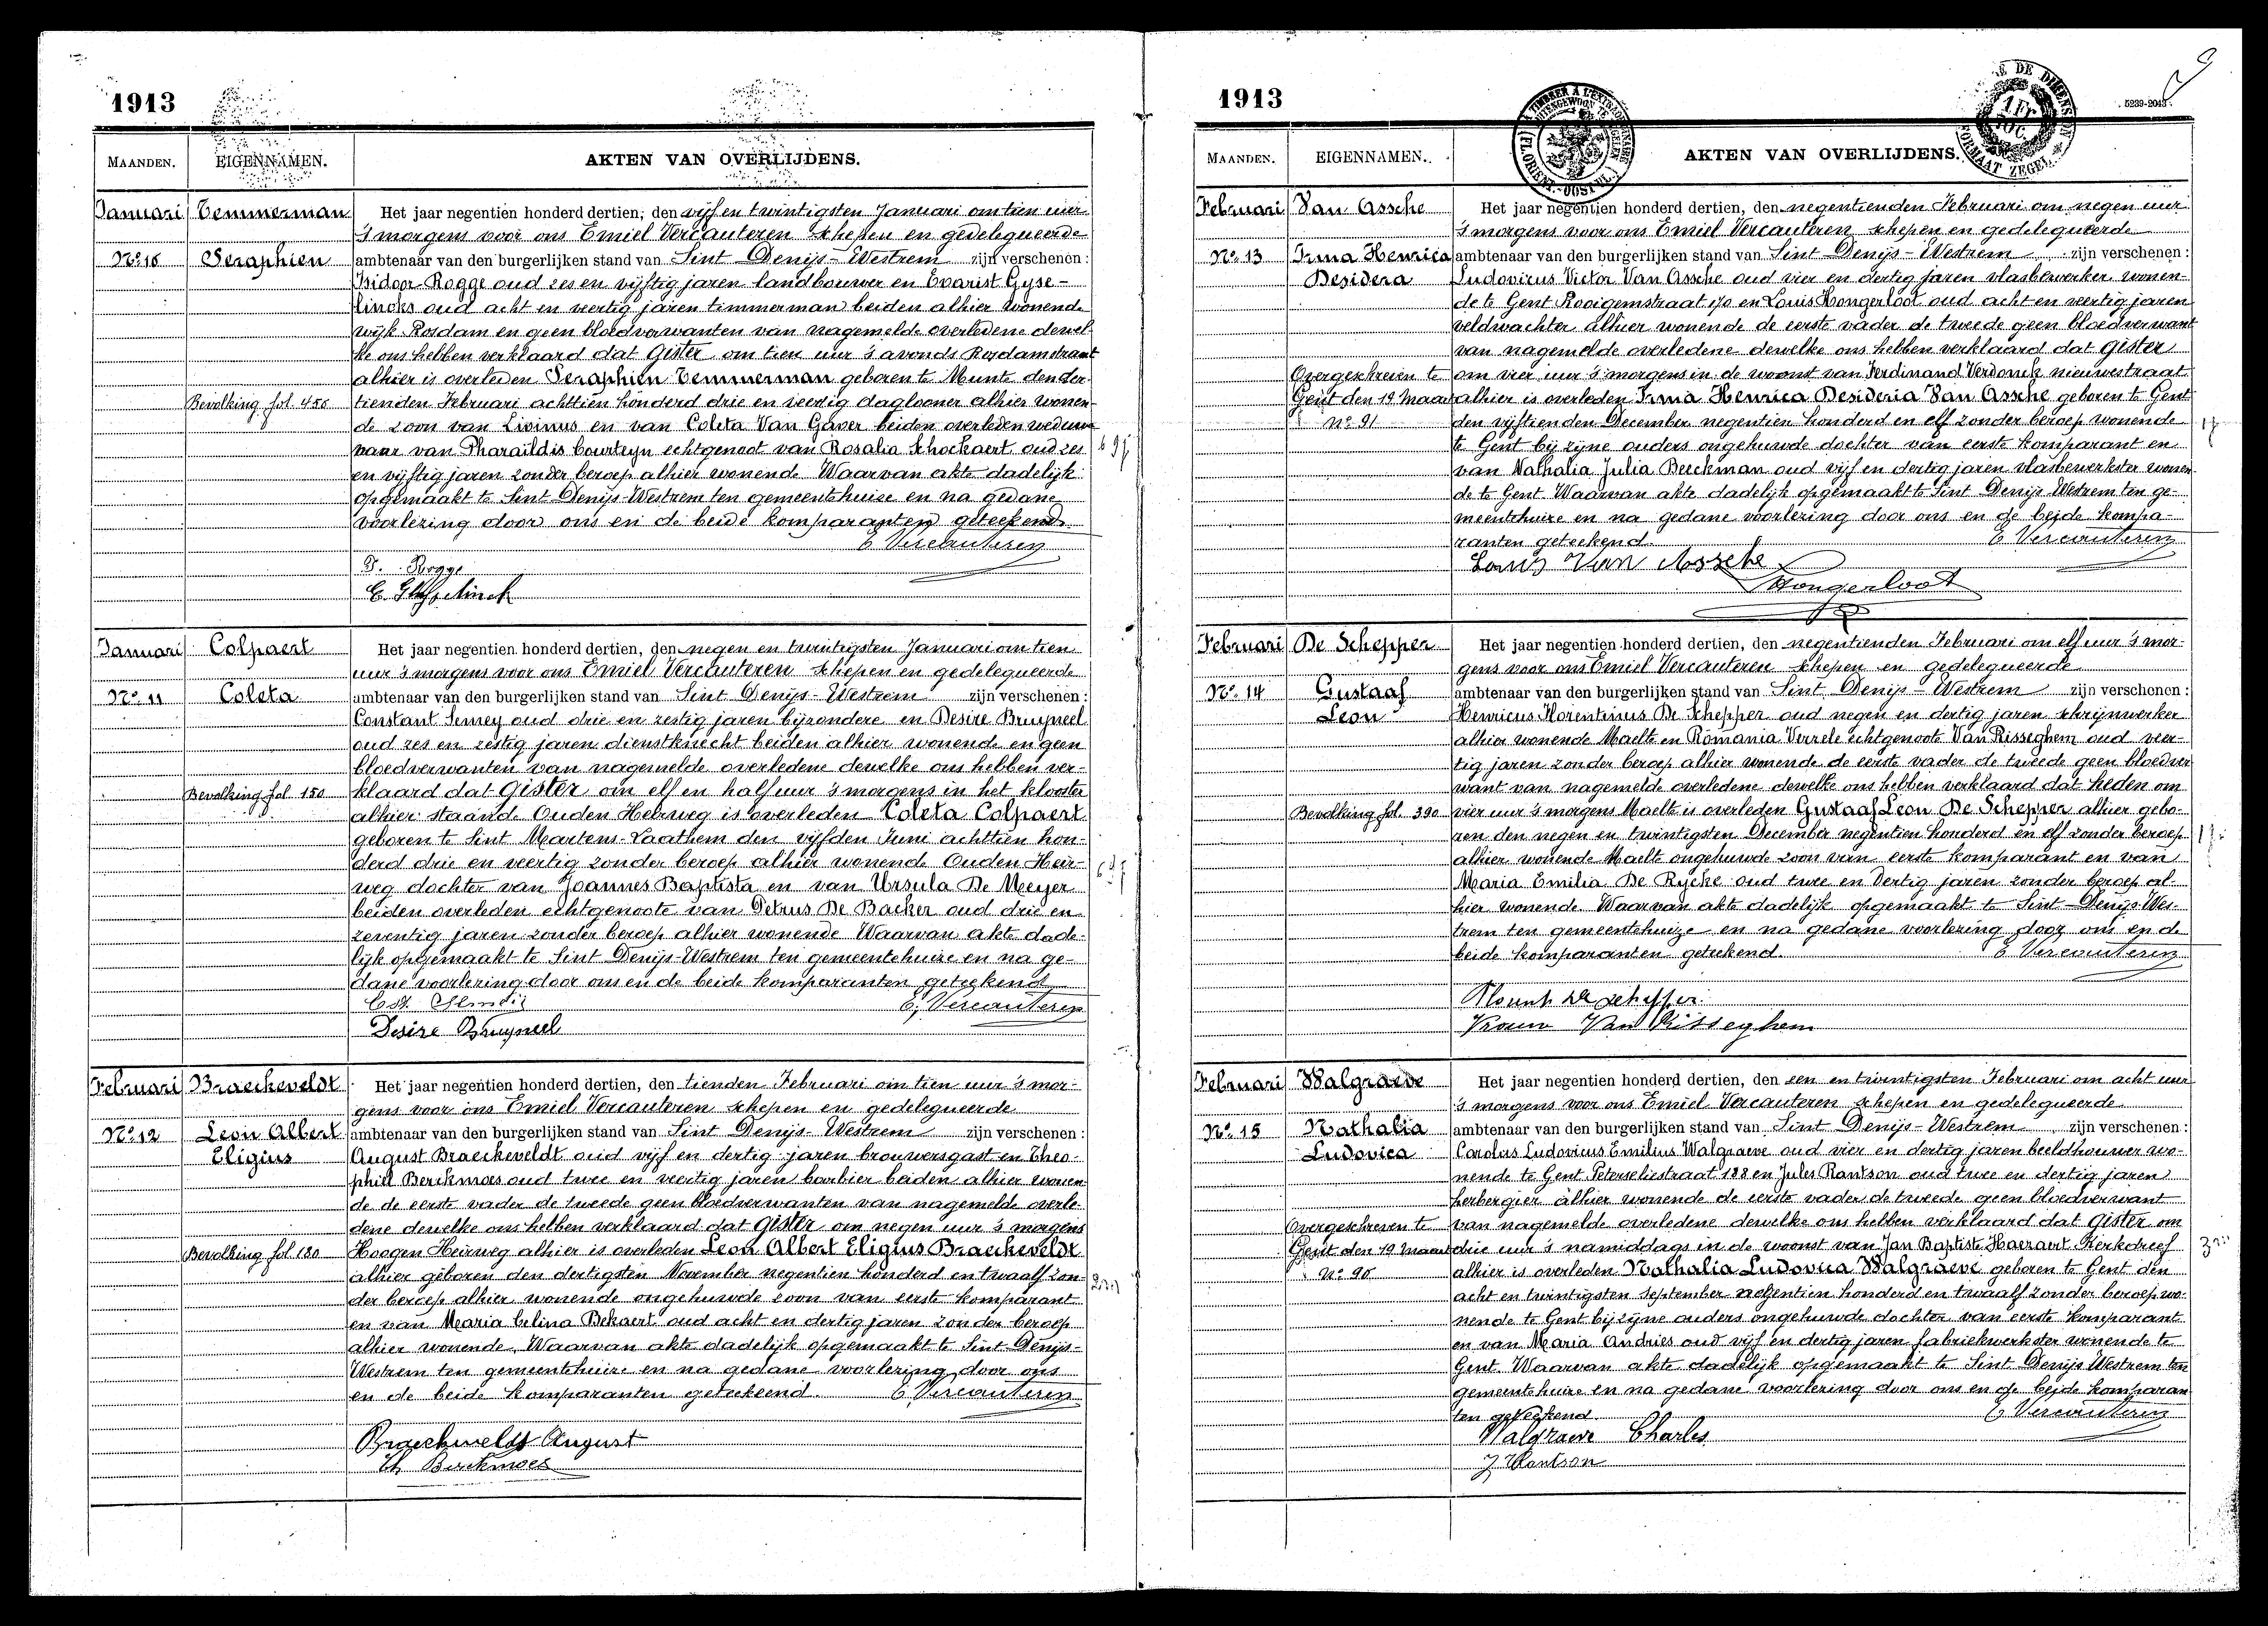 1913
MAANDEN. EIGENNAMEN. AKTEN VAN OVERLIJDENS.
Januari Temmerman Het jaar negentien honderd dertien, den vijf en twintigsten Januari om tien uur
's morgens voor ons Emiel Vercauteren schepen en gedelegueerde
No. 10 Seraphien ambtenaar van den burgerlijken stand van Sint Denijs-Westrem zijn verschenen:
Isidoor Rogge oud zes en vijftig jaren landbouwer en Evarist Gyse-
lincks oud acht en veertig jaren timmerman beiden alhier wonende
wijk Rosdam en geen bloedverwanten van nagemelde overledene dewel-
ke ons hebben verklaard dat gister om tien uur 's avonds Rosdamstraat
alhier is overleden Seraphien Temmerman geboren te Munte den der-
Bevolking fol. 456 tienden Februari achttien honderd drie en veertig daglooner alhier wonen-
de zoon van Livinus en van Coleta Van Gaver beiden overleden weduw-
naar van Pharaïldis Courteyn echtgenoot van Rosalia Schockaert oud zes
en vijftig jaren zonder beroep alhier wonende Waarvan akte dadelijk
opgemaakt te Sint Denijs-Westrem ten gemeentehuize en na gedane
voorlezing door ons en de beide komparanten geteekend
E Vercauteren
Rogge
E. Ghyselinck
69j
Januari Colpaert Het jaar negentien honderd dertien, den negen en twintigsten Januari om tien
uur 's morgens voor ons Emiel Vercauteren schepen en gedelegueerde
No. 11 Coleta ambtenaar van den burgerlijken stand van Sint Denijs-Westrem zijn verschenen:
Constant Semey oud drie en zestig jaren bijzondere en Desire Bruyneel
oud zes en zestig jaren dienstknecht beiden alhier wonende en geen
bloedverwanten van nagemelde overledene dewelke ons hebben ver-
Bevolking fol 150 klaard dat gister om elf en half uur 's morgens in het klooster
alhier staande Ouden Heirweg is overleden Coleta Colpaert
geboren te Sint Martens-Laathem den vijfden Juni achttien hon-
derd drie en veertig zonder beroep alhier wonende Ouden Heir-
weg dochter van Joannes Baptista en van Ursula De Meyer
beiden overleden echtgenoote van Petrus De Backer oud drie en
zeventig jaren zonder beroep alhier wonende Waarvan akte dade-
lijk opgemaakt te Sint Denijs-Westrem ten gemeentehuize en na ge-
dane voorlezing door ons en de beide komparanten geteekend
E. Vercauteren
Desire Bruyneel
Februari Braeckeveldt Het jaar negentien honderd dertien, den tienden Februari om tien uur 's mor-
gens voor ons Emiel Vercauteren schepen en gedelegueerde
No. 12 Leon Albert ambtenaar van den burgerlijken stand van Sint Denijs-Westrem zijn verschenen:
Eligius August Braeckeveldt oud vijf en dertig jaren brouwersgast en Theo-
phiel Berckmoes oud twee en veertig jaren barbier beiden alhier wonen-
de de eerste vader de tweede geen bloedverwanten van nagemelde overle-
dene dewelke ons hebben verklaard dat gister om negen uur 's morgens
Bevolking fol 180 Hoogen Heirweg alhier is overleden Leon Albert Eligius Braeckeveldt
alhier geboren den dertigsten November negentien honderd en twaalf zon-
der beroep alhier wonende ongehuwde zoon van eerste komparant
en van Maria Celina Bekaert oud acht en dertig jaren zonder beroep
alhier wonende. Waarvan akte dadelijk opgemaakt te Sint-Denijs-
Westrem ten gemeentehuize en na gedane voorlezing door ons
en de beide komparanten geteekend. E. Vercauteren
Braeckeveldt August
Th Berckmoes
1913
5239-2043
MAANDEN. EIGENNAMEN. AKTEN VAN OVERLIJDENS.
Februari Van Assche Het jaar negentien honderd dertien, den negentienden Februari om negen uur
's morgens voor ons Emiel Vercauteren schepen en gedelegueerde
No. 13 Irma Henrica ambtenaar van den burgerlijken stand van Sint Denijs-Westrem zijn verschenen:
Desidera Ludovicus Victor Van Assche oud vier en dertig jaren vlasbewerker wonen-
de te Gent Rooigemstraat 170 en Louis Hongerloot oud acht en veertig jaren
veldwachter alhier wonende de eerste vader de tweede geen bloedverwant
van nagemelde overledene dewelke ons hebben verklaard dat gister
Overgeschreven te om vier uur 's morgens in de woonst van Ferdinand Verdonck nieuwestraat
Gent den 19 Maart alhier is overleden Irma Henrica Desideria Van Assche geboren te Gent
No. 91 den vijftienden December negentien honderd en elf zonder beroep wonende
te Gent bij zijne ouders ongehuwde dochter van eerste komparant en
van Nathalia Julia Beeckman oud vijf en dertig jaren vlasbewerkster wonen-
de te Gent. Waarvan akte dadelijk opgemaakt te Sint Denijs Westrem ten ge-
meentehuize en na gedane voorlezing door ons en de beide kompa-
ranten geteekend. E Vercauteren
Louis Van Assche
Hongerloot
Februari De Schepper Het jaar negentien honderd dertien, den negentienden Februari om elf uur 's mor-
gens voor ons Emiel Vercauteren schepen en gedelegueerde
No. 14 Gustaaf ambtenaar van den burgerlijken stand van Sint Denijs-Westrem zijn verschenen:
Leon Henricus Florentinus De Schepper oud negen en dertig jaren schrijnwerker
alhier wonende Maelte en Romania Verzele echtgenoote Van Risseghem oud veer-
tig jaren zonder beroep alhier wonende de eerste vader de tweede geen bloedver-
want van nagemelde overledene dewelke ons hebben verklaard dat heden om
Bevolking fol. 390 vier uur 's morgens Maelte is overleden Gustaaf Leon De Schepper alhier gebo-
ren den negen en twintigsten December negentien honderd en elf zonder beroep
alhier wonende Maelte ongehuwde zoon van eerste komparant en van
Maria Emilia De Rycke oud twee en dertig jaren zonder beroep al-
hier wonende Waarvan akte dadelijk opgemaakt te Sint-Denijs-Wes-
trem ten gemeentehuize en na gedane voorlezing door ons en de
beide komparanten geteekend. E Vercauteren
De Schepper
Vrouw Van Risseghem
Februari Walgraeve Het jaar negentien honderd dertien, den een en twintigsten Februari om acht uur
's morgens voor ons Emiel Vercauteren schepen en gedelegueerde
No. 15 Nathalia ambtenaar van den burgerlijken stand van Sint Denijs-Westrem zijn verschenen:
Ludovica Carolus Ludovicus Emilius Walgraeve oud vier en dertig jaren beeldhouwer wo-
nende te Gent Peterseliestraat 188 en Jules Rantson oud twee en dertig jaren
herbergier alhier wonende de eerste vader de tweede geen bloedverwant
Overgeschreven te van nagemelde overledene dewelke ons hebben verklaard dat gister om
Gent den 19 Maart drie uur 's namiddags in de woonst van Jan Baptiste Haeraert Kerkdreef
No. 90 alhier is overleden Nathalia Ludovica Walgraeve geboren te Gent den
acht en twintigsten September negentien honderd en twaalf zonder beroep wo-
nende te Gent bij zijne ouders ongehuwde dochter van eerste komparant
en van Maria Andries oud vijf en dertig jaren fabriekwerkster wonende te
Gent. Waarvan akte dadelijk opgemaakt te Sint Denijs Westrem ten
gemeentehuize en na gedane voorlezing door ons en de beide komparan-
ten geteekend. E Vercauteren
Walgraeve Charles
J Rantson